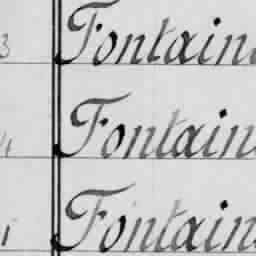 3 Fontain
Fontain
Fontain